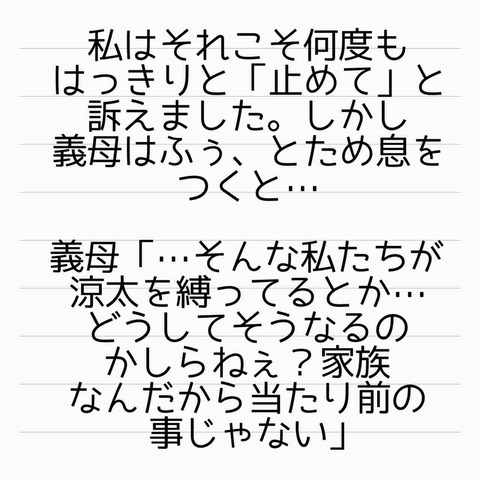 私はそれこそ何度も
はっきりと「止めて」と
訴えました。しかし
義母はふぅ、とため息を
つくと…
義母「…そんな私たちが
涼太を縛ってるとか…
どうしてそうなるの
かしらねぇ？家族
なんだから当たり前の
事じゃない」